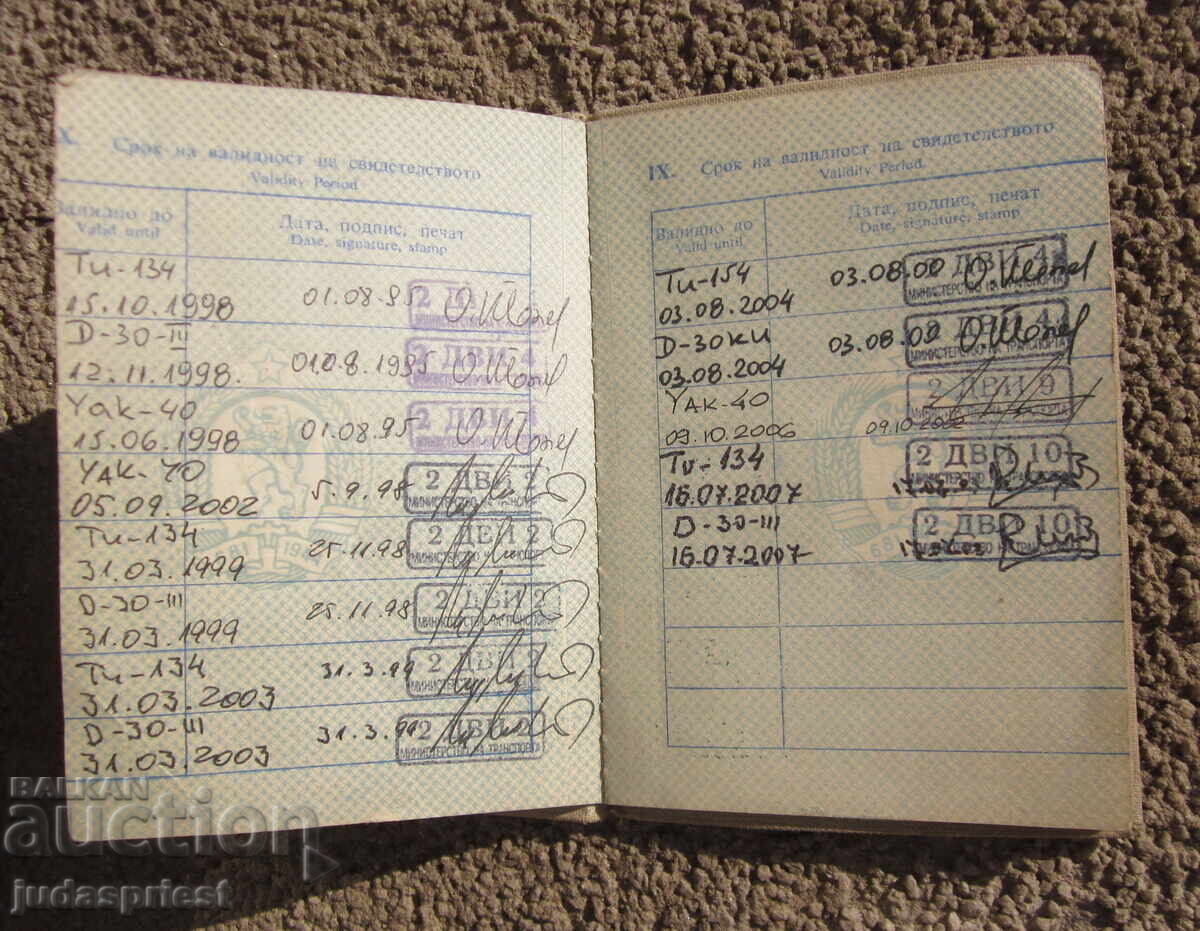 X. Срок на валидност на свидетелството
Validity Period
Валидно до
Valid until
Дата, подпис, печат
Date, signature, stamp
Ту-134
15.10.1998
01.08.95
D-30-III
12.11.1998.
01.08.1995
2 ДВИ 4
Yak-40
15.06.1998
01.08.95
YAK-40
05.09.2002
5.9.98
2 ДВИ 2
МИНИСТЕРСТВО НА ТРАНСПОРТА
Ту-134
31.03.1999
25.11.98
2 ДВИ 2
D-30-III
31.03.1999
25.11.98
2 ДВИ 2
МИНИСТЕРСТВО НА ТРАНСПОРТА
Ту-134
31.03.2003
31.3.99
2 ДВИ 2
D-30-III
31.03.2003
31.3.99
2 ДВИ 2
МИНИСТЕРСТВО НА ТРАНСПОРТА
IX. Срок на валидност на свидетелството
Validity Period
Валидно до
Valid until
Дата, подпис, печат
Date, signature, stamp
Ту-154
03.08.2004
03.08.00
2 ДВИ 4
МИНИСТЕРСТВО НА ТРАНСПОРТА
D-30КИ
03.08.2004
03.08.00
2 ДВИ 4
МИНИСТЕРСТВО НА ТРАНСПОРТА
YAK-40
09.10.2006
09.10.2002
2 ДВИ 9
Tu-134
16.07.2007
2 ДВИ 10
D-30-III
16.07.2007
2 ДВИ 10
BALKAN
auction
judaspriest